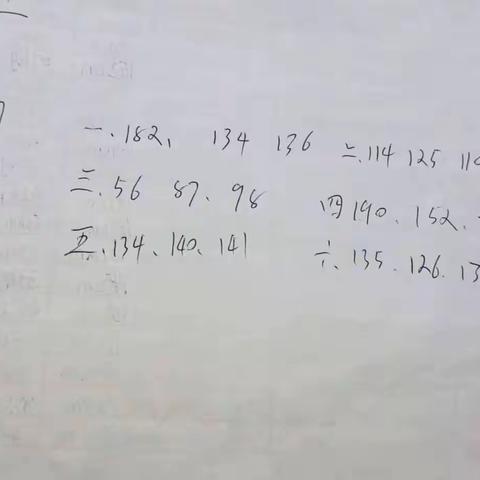 一、182、 134 136 二、114 125 11
三、56 87、98 四190、152、
五、134、140、141 六、135、126、13